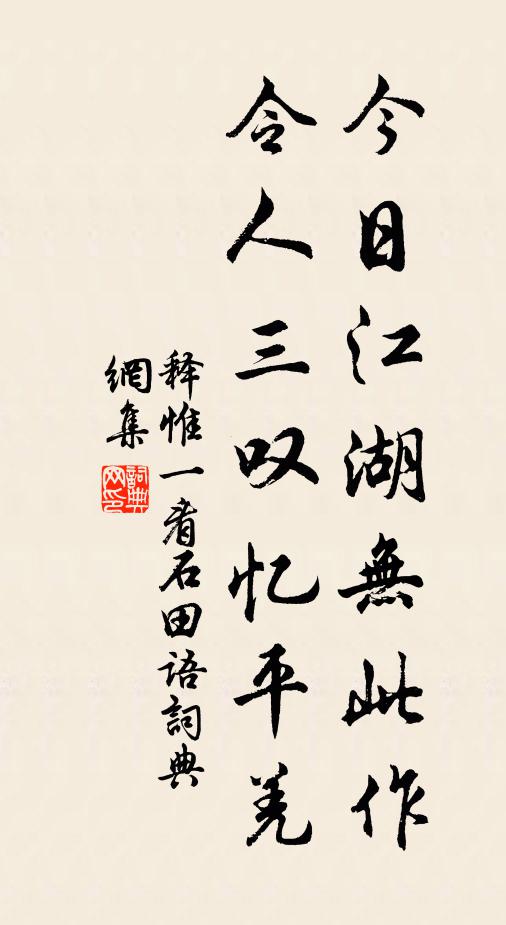 今日江湖無此作
令人三叹忆平羌
释惟一看石田语詞典
網集
詞典網印